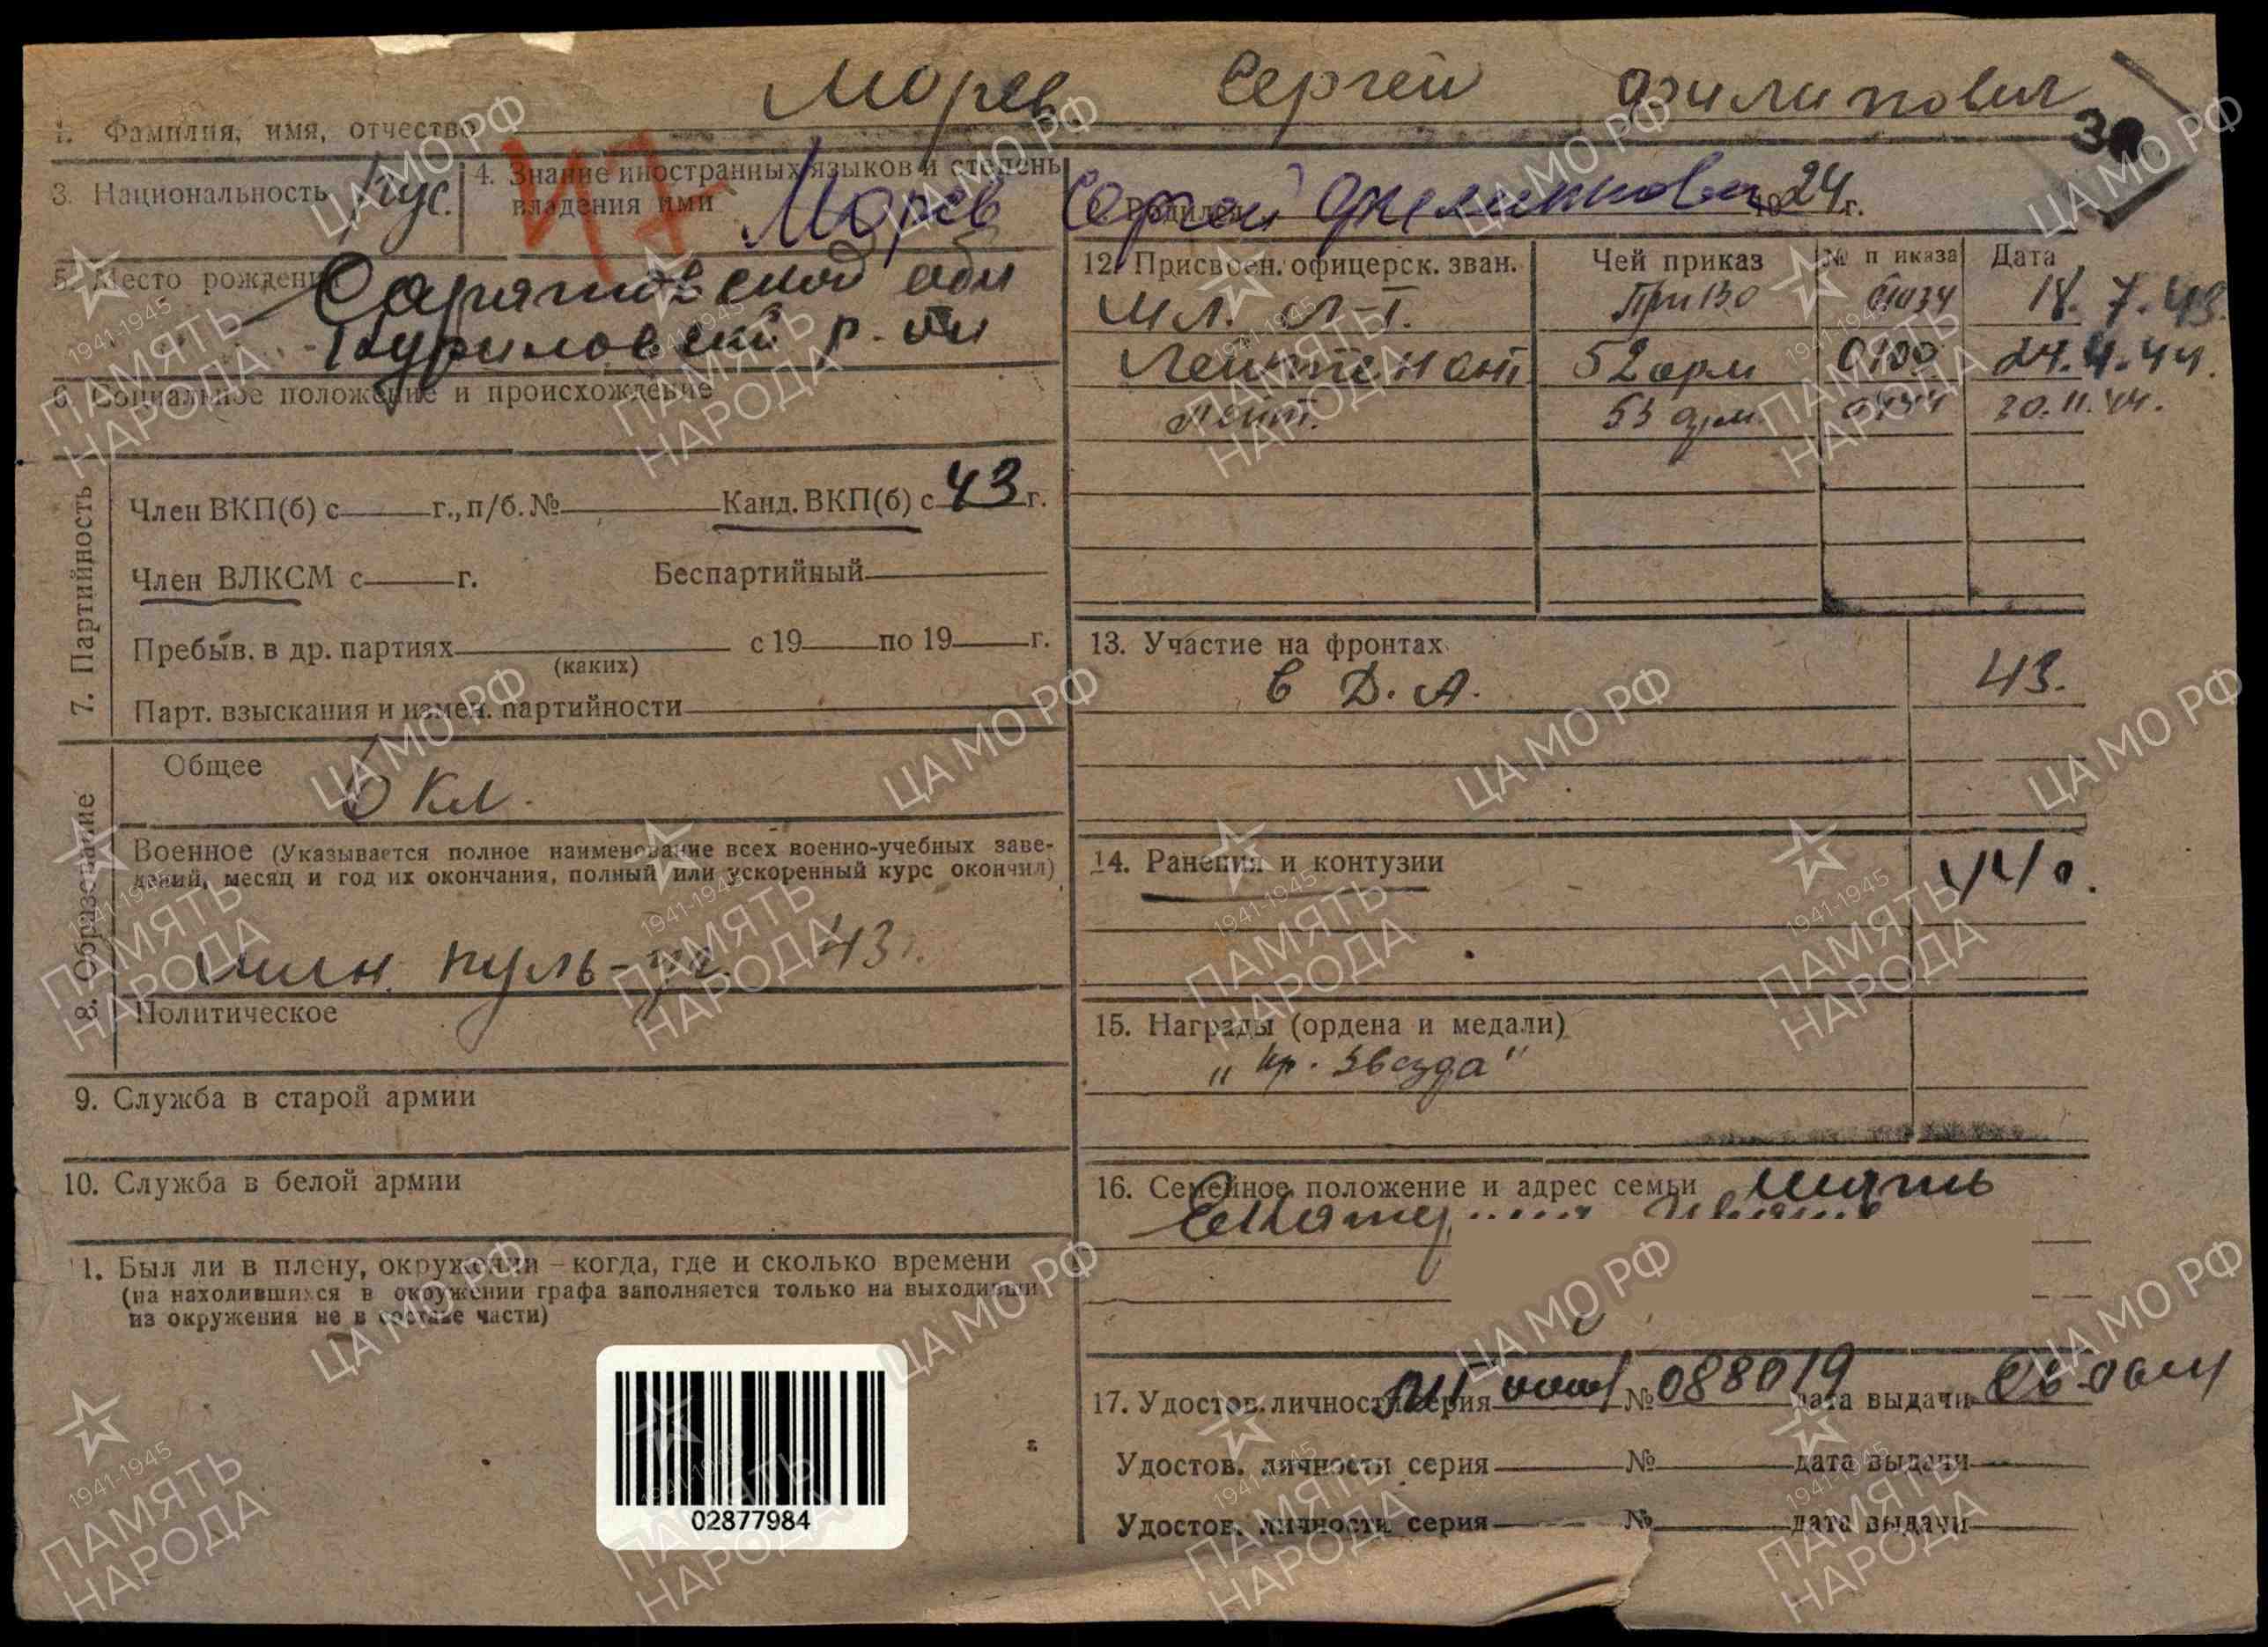 Морев Сергей Филипович
1. Фамилия, имя, отчество
3. Национальность Рус.
4. Знание иностранных языков и степень
владения ими
47
Морев Сергей Филиппович
Родился 1924 г.
5. Место рождения Саратовской обл
Куриловский р-он
6. Социальное положение и происхождение
7. Партийность
Член ВКП(б) с г., п/б. № Канд. ВКП(б) с 43 г.
Член ВЛКСМ с г. Беспартийный
Пребыв. в др. партиях с 19 по 19 г.
(каких)
Парт. взыскания и измен. партийности
8. Образование
Общее
6 кл.
Военное (Указывается полное наименование всех военно-учебных заве-
дений, месяц и год их окончания, полный или ускоренный курс окончил)
мин. пуль-уч. 43г.
Политическое
9. Служба в старой армии
10. Служба в белой армии
1. Был ли в плену, окружении – когда, где и сколько времени
(на находившихся в окружении графа заполняется только на выходивши
из окружения не в составе части)
02877984
12. Присвоен. офицерск. зван. Чей приказ № п иказа Дата
мл. л-т. ПриВО 01034 18.7.43.
Лейтенант 52 арм 0100 24.4.44.
лейт. 53 арм. 20.11.44.
13. Участие на фронтах
в Д. А. 43.
14. Ранения и контузии 44г.
15. Награды (ордена и медали)
„кр. Звезда"
16. Семейное положение и адрес семьи мать
17. Удостов. личности серия № 088019 дата выдачи
Удостов. личности серия № дата выдачи
Удостов. личности серия № дата выдачи
ЦА МО РФ
1941-1945
ПАМЯТЬ
НАРОДА